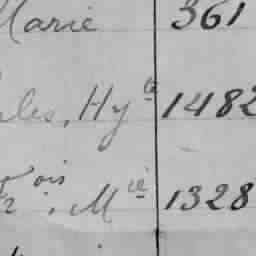 Marie 361
ules, Hyte 1482
ois, Mie 1328